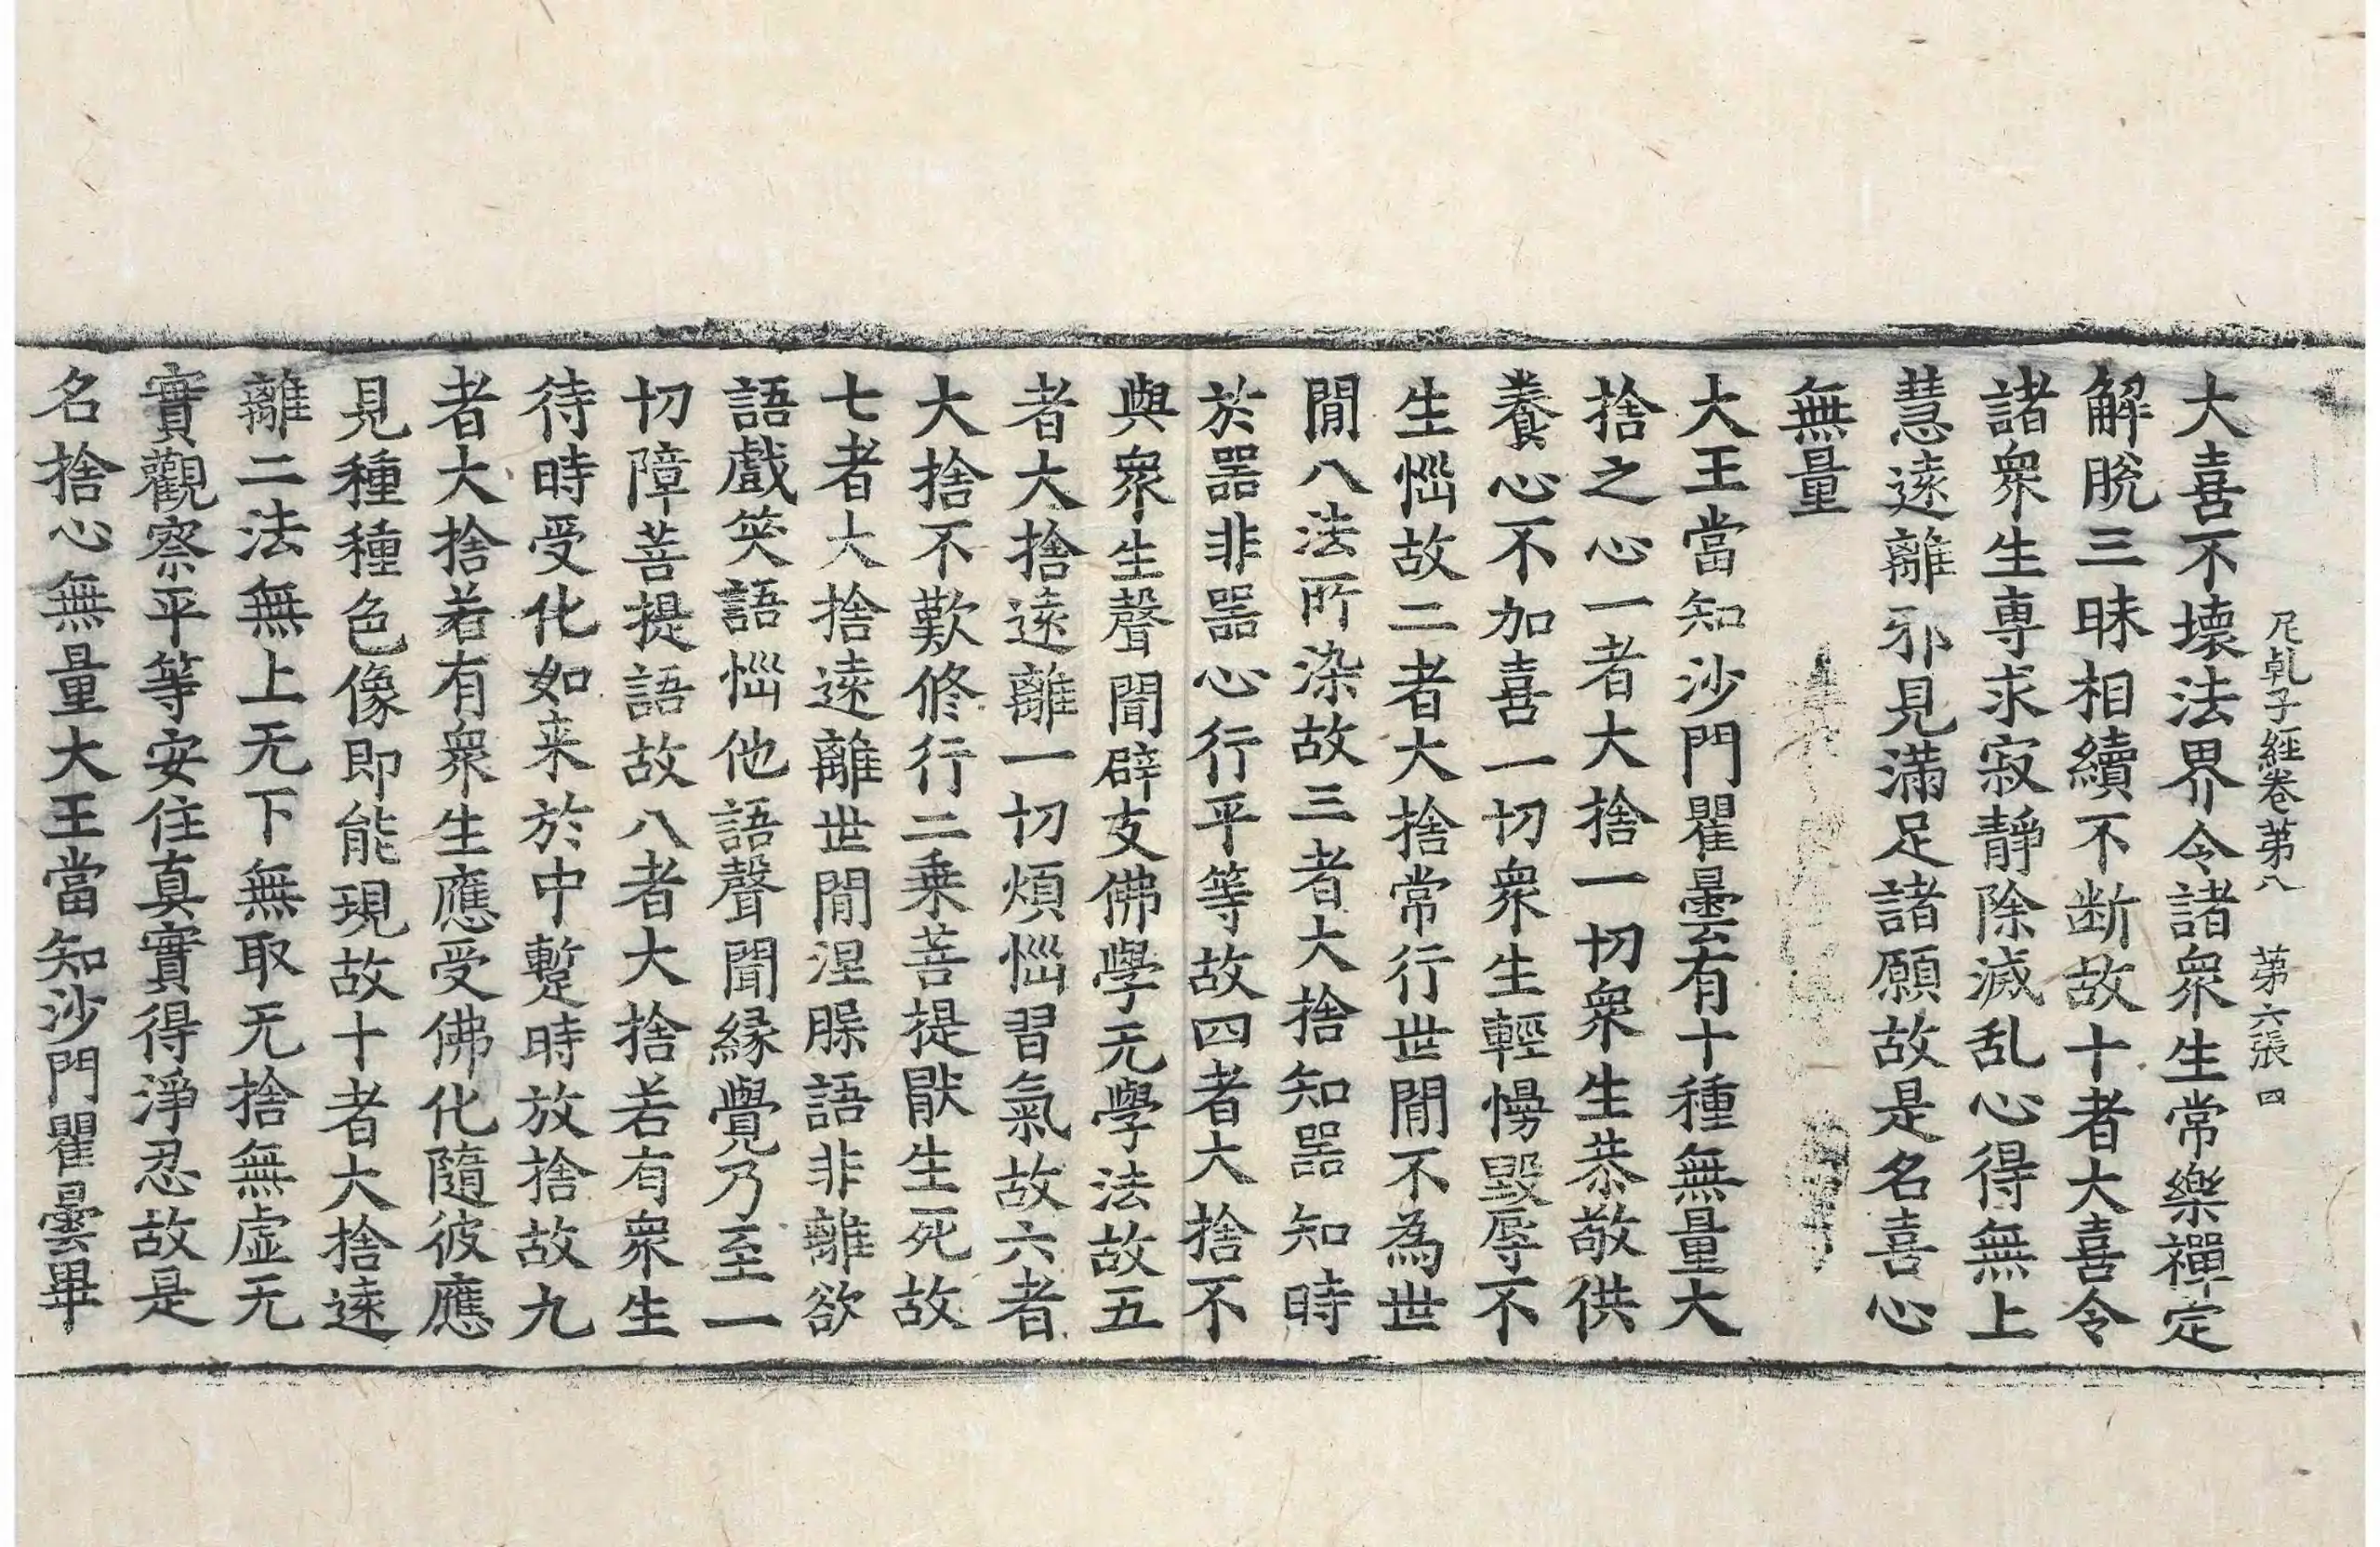 尼乹子經卷苐八 苐六張 四
大喜不壞法界令諸衆生常樂禪定
解脫三昧相續不断故十者大喜令
諸衆生專求寂靜除滅乱心得無上
慧遠離邪見滿足諸願故是名喜心
無量
大王當知沙門瞿曇有十種無量大
捨之心一者大捨一切衆生恭敬供
養心不加喜一切衆生輕慢毀辱不
生惱故二者大捨常行世閒不為世
閒八法所染故三者大捨知噐知時
於噐非噐心行平等故四者大捨不
與衆生聲聞辟支佛學无學法故五
者大捨遠離一切煩惱習氣故六者
大捨不歎修行二乗菩提猒生死故
七者大捨遠離世閒涅縣語非離欲
語戲笑語惱他語聲聞緣覺乃至一
切障菩提語故八者大捨若有衆生
待時受化如来於中蹔時放捨故九
者大捨若有衆生應受佛化隨彼應
見種種色像即能現故十者大捨遠
離二法無上无下無取无捨無虛无
實觀察平等安住真實得淨忍故是
名捨心無量大王當知沙門瞿曇畢